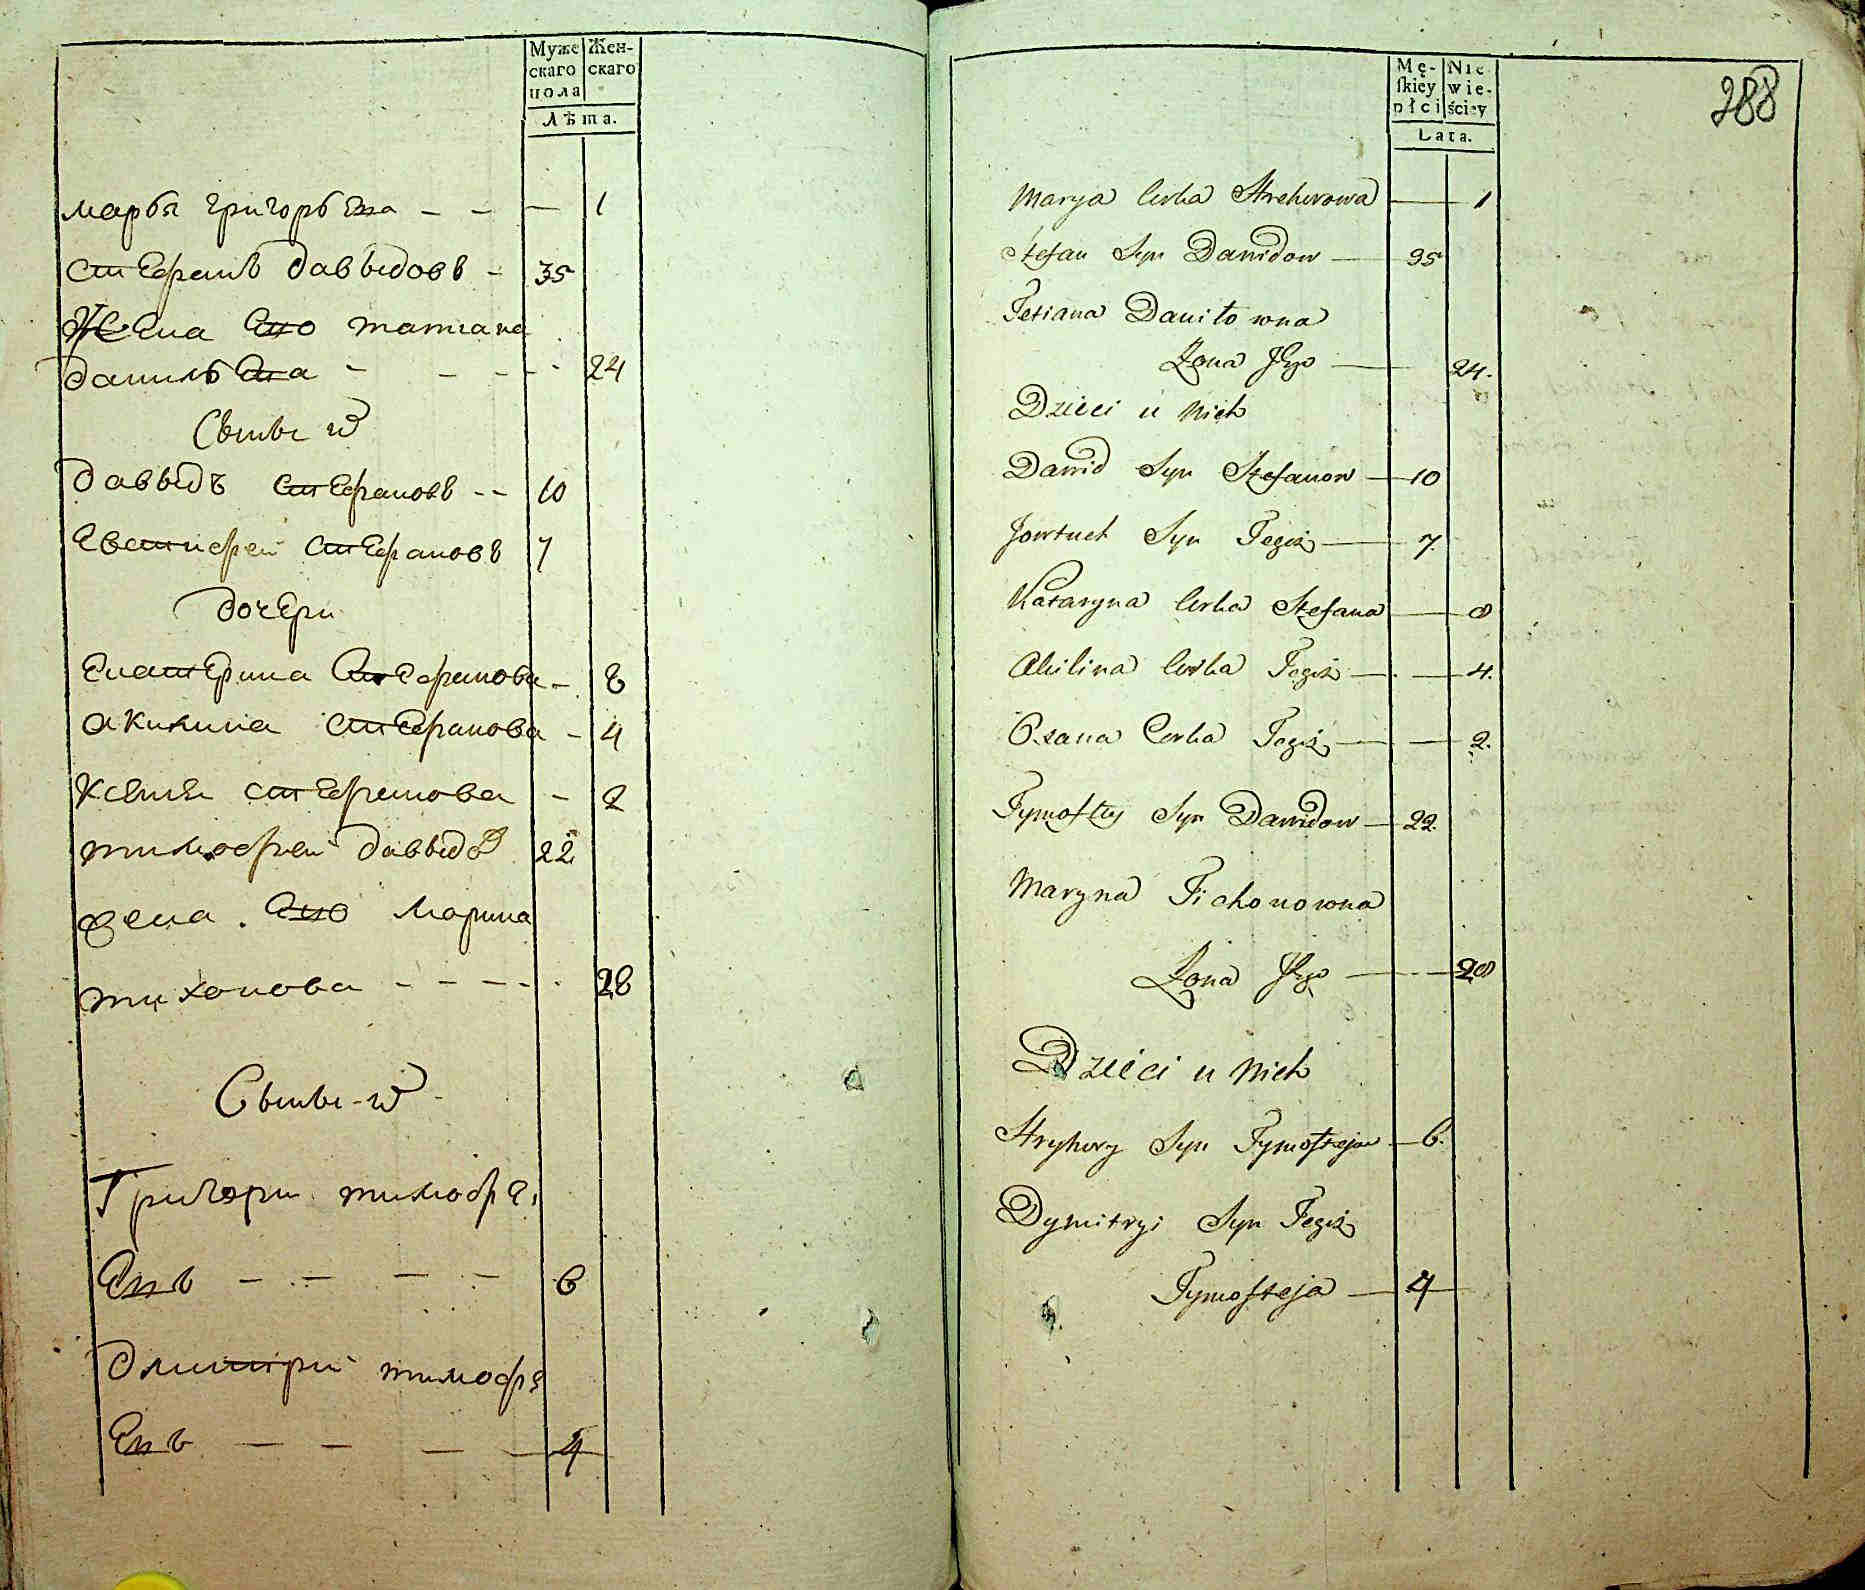 Муже Жен-
скаго скаго
пола
Лѣта.
марья григорьева - - — 1
стефанъ давыдовъ - 35
Жена его татиана
данильева - - - - 24
Сыны
давыдъ стефановъ -- 10
евстифей стефановъ 7
дочери
екатерина стефанова - 8
акилина стефанова - 4
ксения стефанова - 2
тимофей давыдо 22
жена его марина
тихонова - - - - - 28
Сыны
Григори тимофе
евъ — — — — 6
дмитрий тимофе
евъ — — — — 4
Mę- Nie
skiey wie-
płci ściey
Lata.
288
Marya Corka Hrehorowa — 1
Stefan Syn Dawidow — 35
Tetiana Daniłowna
Zona Jego — 24.
Dzieci u Nich
Dawid Syn Stefanow — 10
Jowtuch Syn Tegoż — 7.
Kataryna Corka Stefana — 8
Akilina Corka Tegoż — 4.
Oxana Corka Tegoż — 2.
Tymoftey Syn Dawidow — 22.
Maryna Tichonowna
Zona Jego — 28
Dzieci u Nich
Hryhory Syn Tymofteja — 6.
Dymitryi Syn Tegoż
Tymofteja — 4